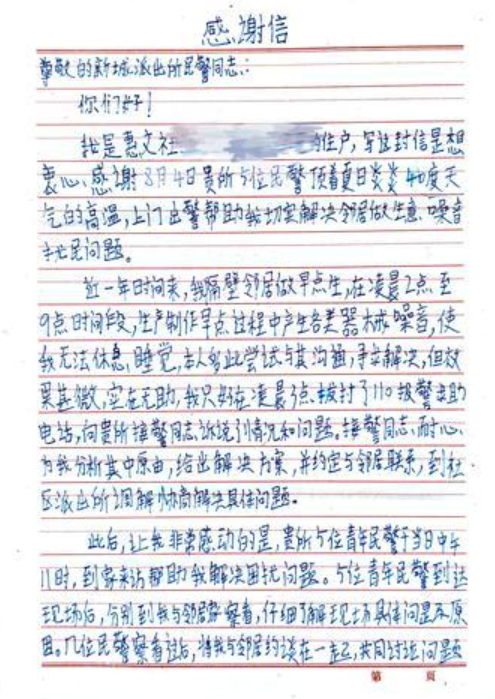 感谢信
尊敬的新城派出所民警同志：
你们好！
我是惠文社 的住户，写这封信是想
衷心感谢8月4日贵所5位民警顶着夏日炎炎40度天
气的高温，上门出警帮助我切实解决邻居做生意噪音
扰民问题。
近一年时间来，我隔壁邻居做早点生，在凌晨2点至
9点时间段，生产制作早点过程中产生各类器械噪音，使
我无法休息、睡觉，本人多此尝试与其沟通，寻求解决，但效
果甚微，实在无助，我只好在凌晨3点拨打了110报警求助
电话，向贵所接警同志诉说了情况和问题。接警同志耐心
为我分析其中原由，给出解决方案，并约定与邻居联系，到社
区派出所调解协商解决具体问题。
此后，让我非常感动的是，贵所5位青年民警于当日中午
11时，到家来访帮助我解决困扰问题。5位青年民警到达
现场后，分别到我与邻居家察看，仔细了解现场具体问题和原
因。几位民警察看过后，将我与邻居约谈在一起，共同讨论问题
第 页